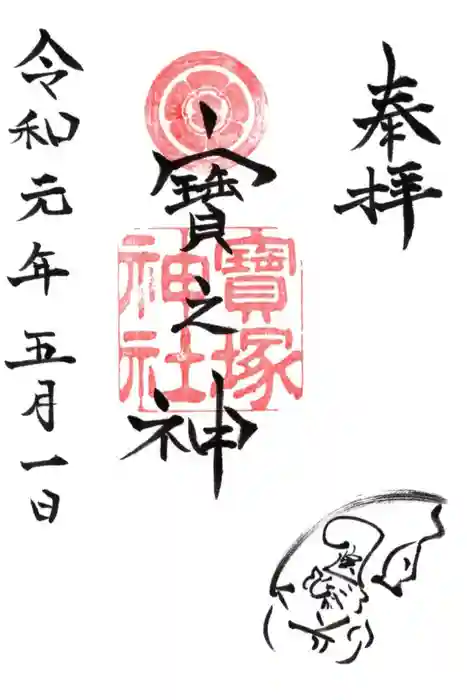 奉拝
寶之神
寶塚
神社
令和元年五月一日